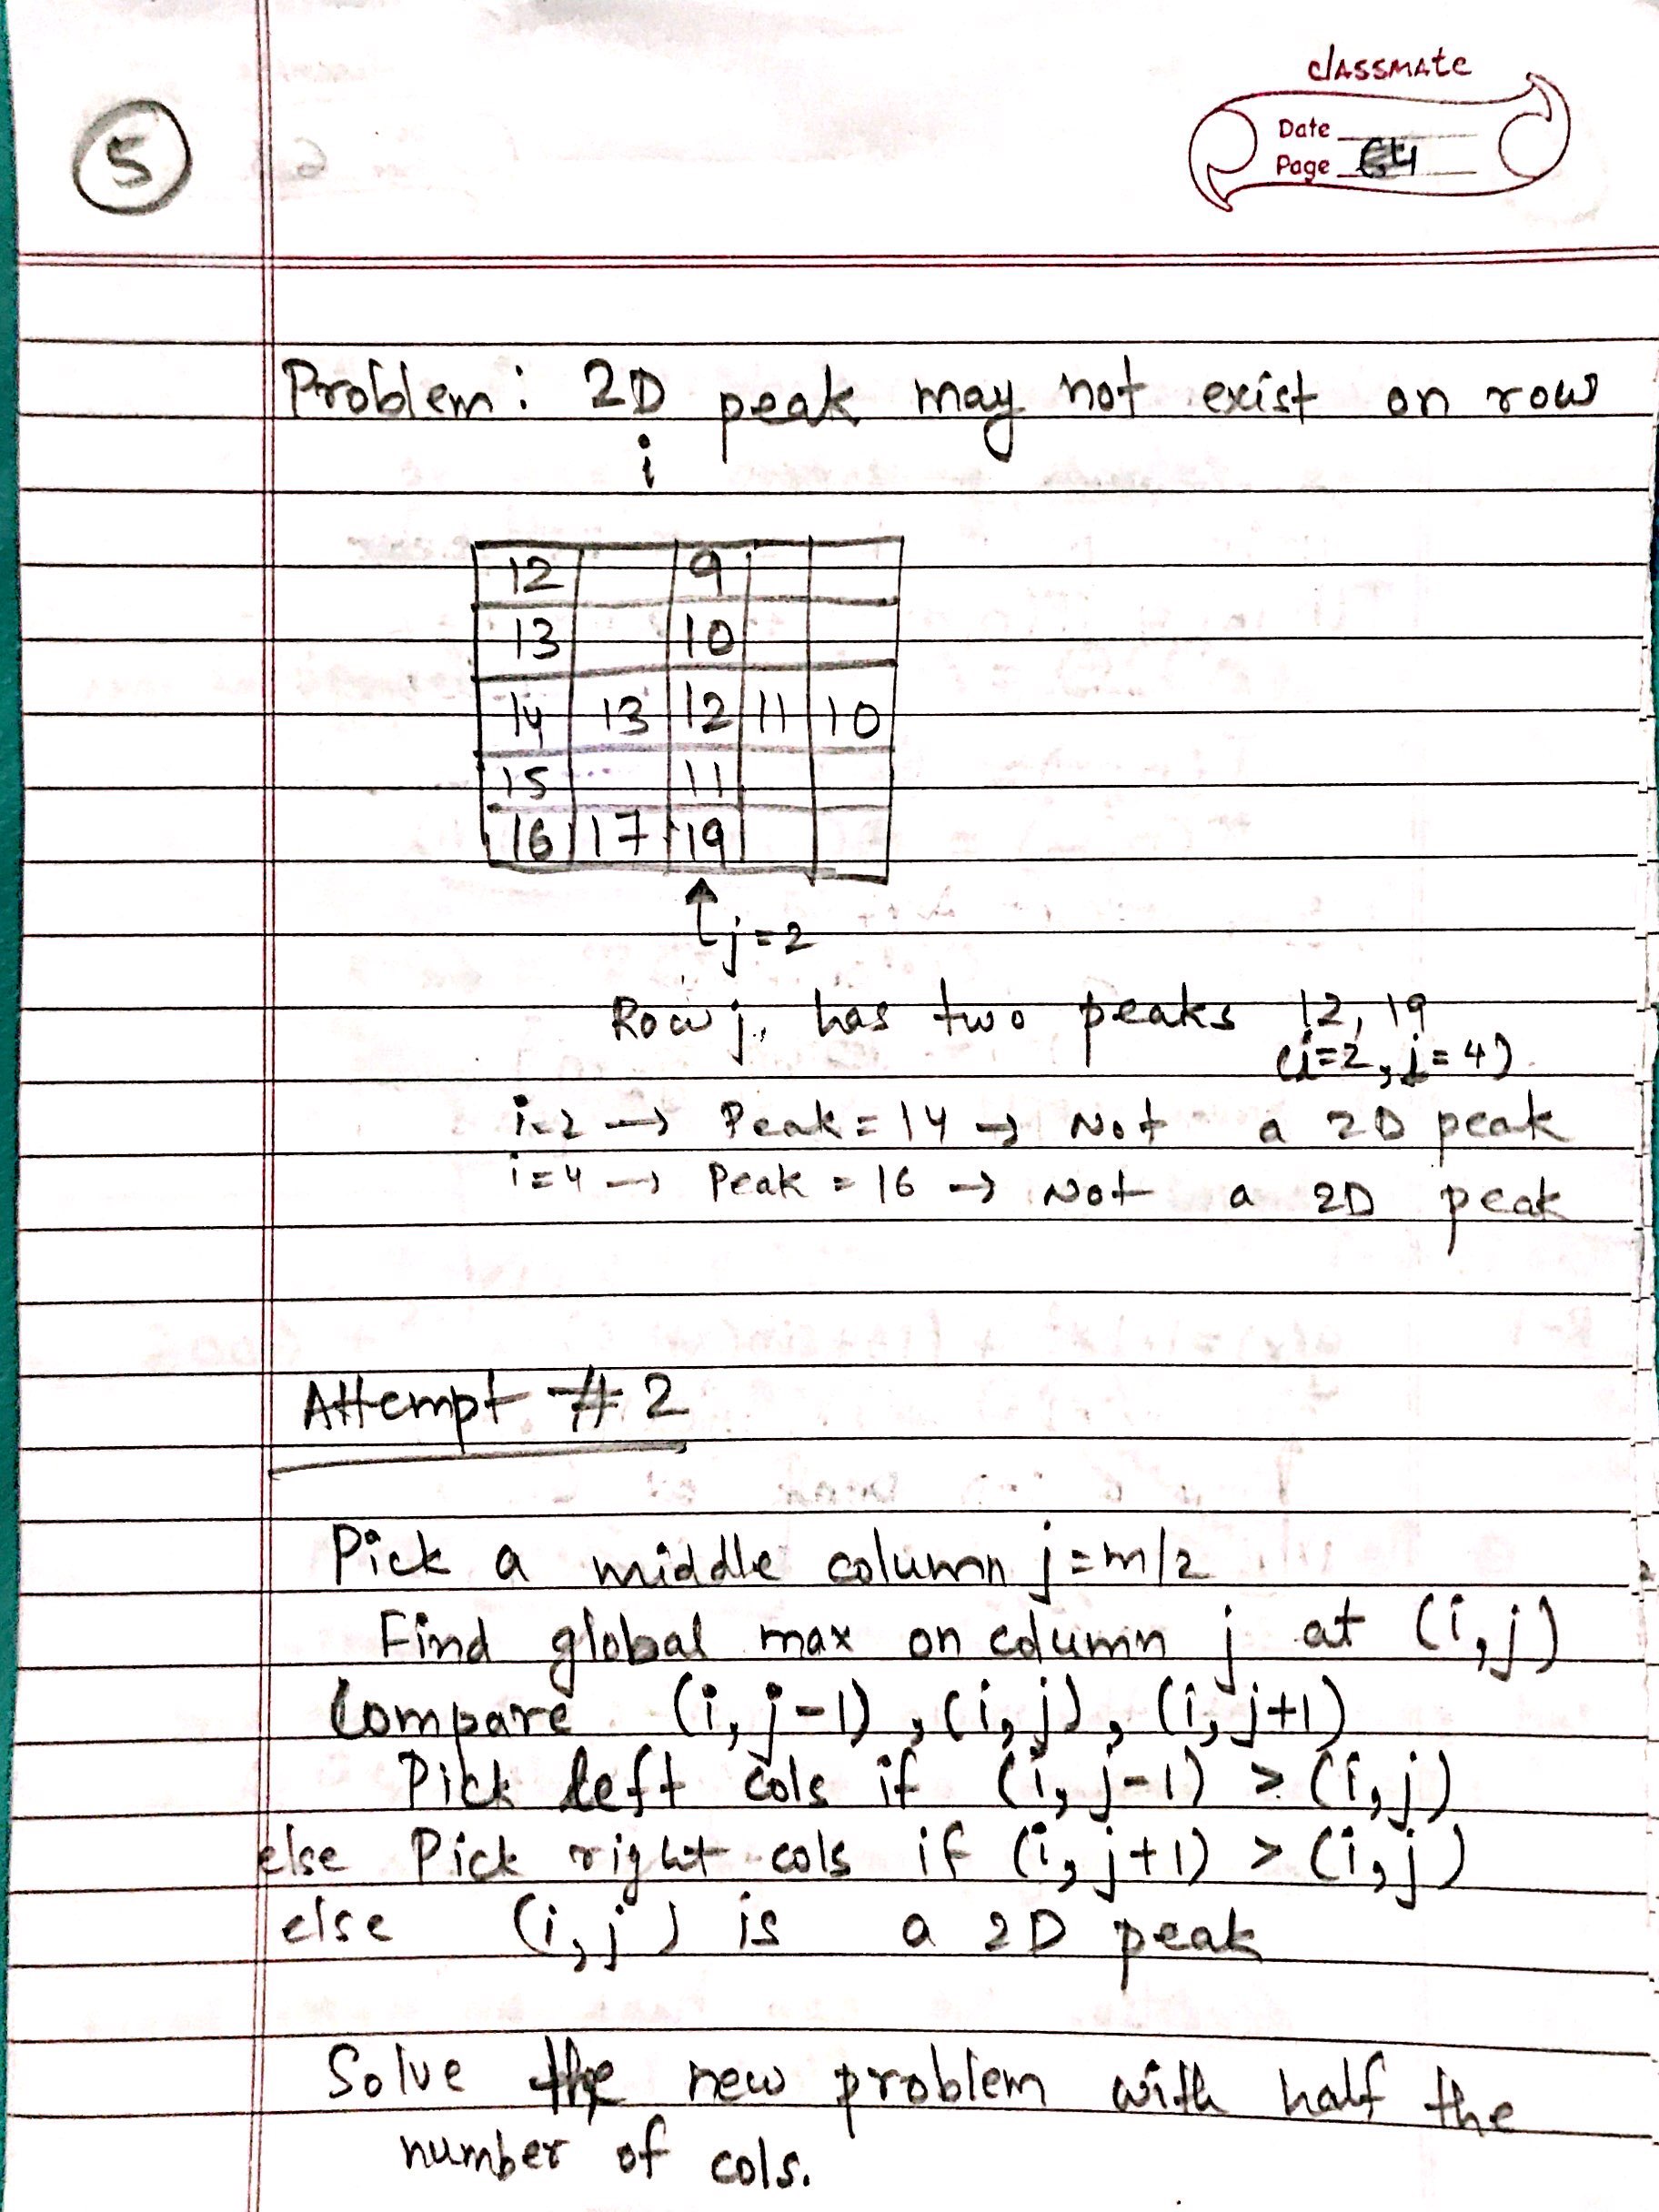 classmate
5
Date
Page
Problem: 2D peak may not exist on row
i
12 9
13 10
14 13 12 11 10
15 11
16 17 19
j=2
Row j, has two peaks 12, 19
(i=2, j=4)
i=2 → Peak = 14 → Not a 2D peak
i=4 → Peak = 16 → Not a 2D peak
Attempt #2
Pick a middle column j=m/2
Find global max on column j at (i,j)
Compare (i, j-1), (i,j), (i, j+1)
Pick left cols if (i, j-1) > (i,j)
else Pick right cols if (i, j+1) > (i,j)
else (i,j) is a 2D peak
Solve the new problem with half the
number of cols.